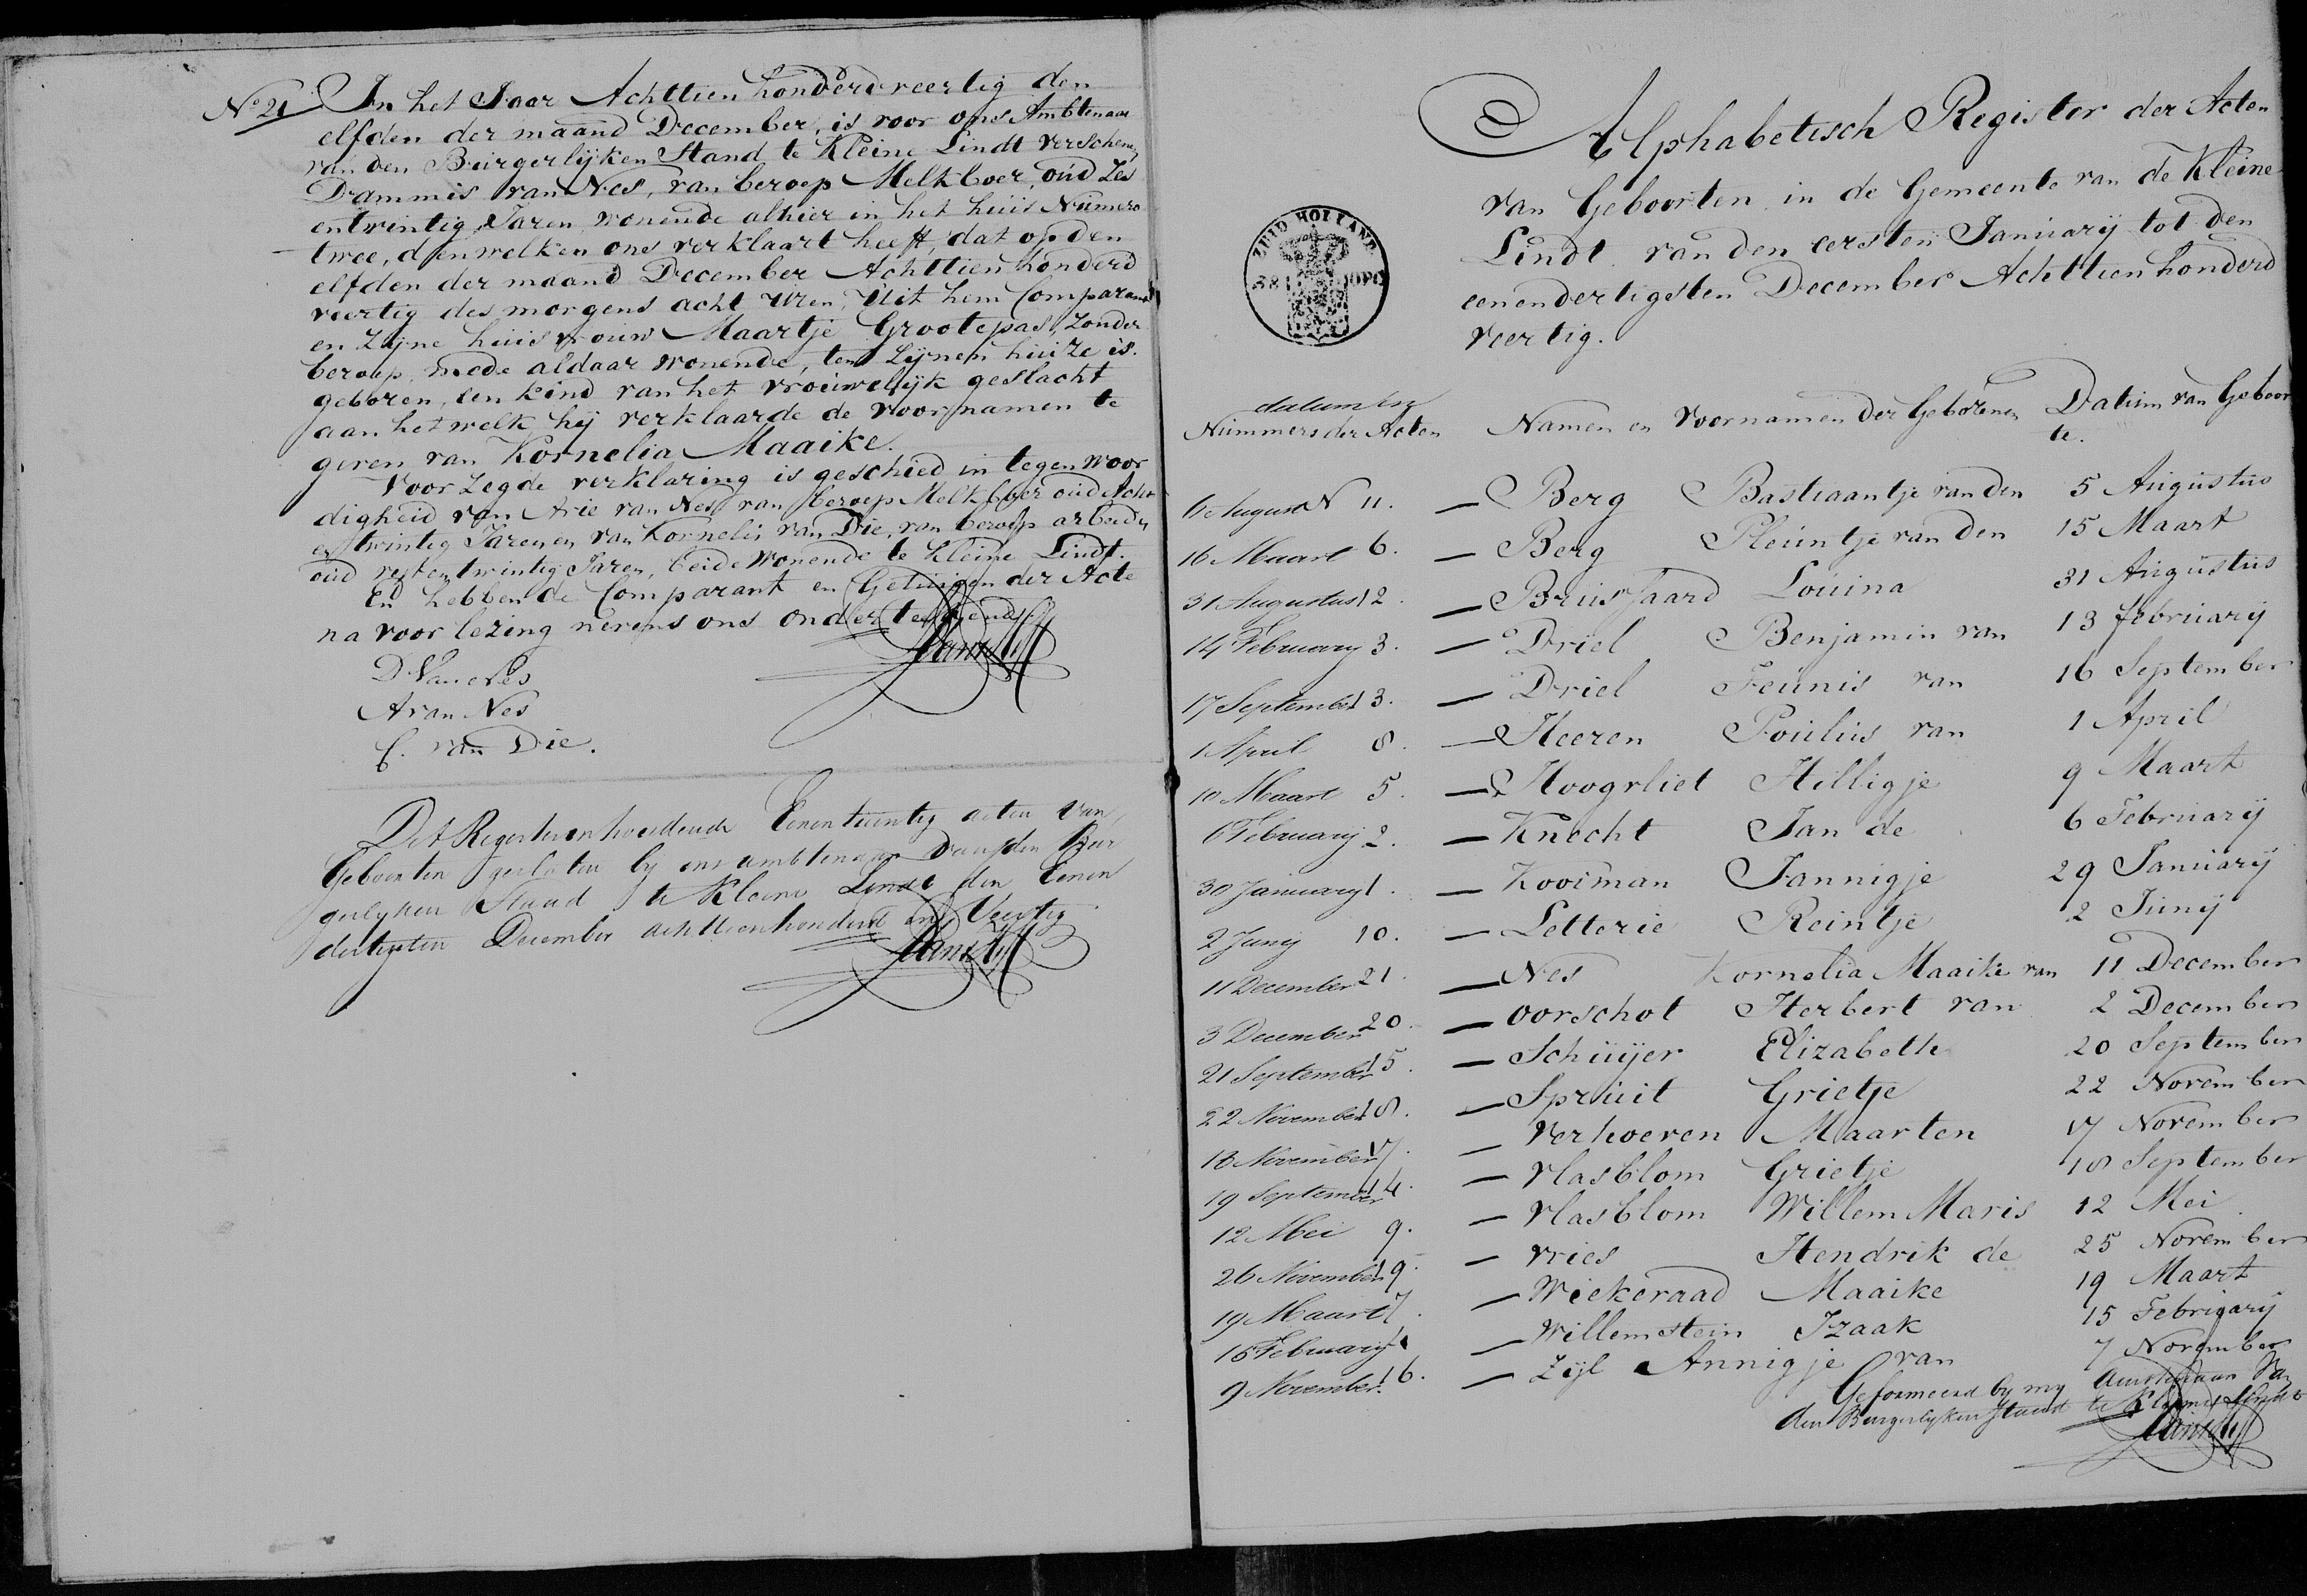 No 21 In het Jaar Achttien honderd veertig den
elfden der maand December, is voor ons Ambtenaar
van den Burgerlijken Stand te Kleine Lindt verschenen
Dammis van Nes, van beroep Melkboer, oud Zes
entwintig Jaren, wonende alhier in het huis Numero
twee, denwelken ons verklaart heeft, dat op den
elfden der maand December Achttien honderd
veertig des morgens acht uren, uit hem Comparant
en Zijne huisvrouw Maartje Grootepas, Zonder
beroep, mede aldaar wonende, ten Zijnen huize is
geboren, een kind van het vrouwelijk geslacht
aan hetwelk hij verklaarde de voornamen te
geven van Kornelia Maaike.
Voorzegde verklaring is geschied in tegenwoor
digheid van Arie van Nes van beroep Melkboer oud Acht
en twintig Jaren en van Kornelis van Die, van beroep arbeider
oud vijfentwintig Jaren, beide wonende te Kleine Lindt.
En hebben de Comparant en Getuigen der Acte
na voorlezing nevens ons onderteekend
D Van Nes
A van Nes
C. van Die.
Dit Register inhoudende Eenentwintig acten van
Geboorten gesloten by ons ambtenaar van den Bur
gerlyken Stand te Kleine Lindt den Eenen
dertigsten December achttienhonderd en Veertig
ZUID HOLLAND
Alphabetisch Register der Acten
van Geboorten in de Gemeente van de Kleine
Lindt van den eersten Januarij tot den
eenendertigsten December Achttien honderd
veertig.
datum en
Nummers der Acten Namen en Voornamen der Geborenen Datum van Geboor
te.
6 August N 11. — Berg Bastiaantje van den 5 Augustus
16 Maart 6. — Berg Pleuntje van den 15 Maart
31 Augustus 12. — Bruisjaard Louina 31 Augustus
14 February 3. — Driel Benjamin van 13 februarij
17 September 13. — Driel Teunis van 16 September
1 April 8. — Heeren Poulus van 1 April
10 Maart 5. — Hoogvliet Hilligje 9 Maart
6 February 2. — Knecht Jan de 6 Februarij
30 January 1. — Kooiman Jannigje 29 Januarij
2 Juny 10. — Letterie Reintje 2 Junij
11 December 21. — Nes Kornelia Maaike van 11 December
3 December 20. — Oorschot Herbert van 2 December
21 September 15. — Schuijer Elizabeth 20 September
22 November 18. — Spruit Grietje 22 November
18 November 17. — Verhoeven Maarten 17 November
19 September 14. — Vlasblom Grietje 18 September
12 Mei 9. — Vlasblom Willem Maris 12 Mei
26 November 19. — Vries Hendrik de 25 November
19 Maart 7. — Wiekeraad Maaike 19 Maart
15 February 4 — Willemstein Izaak 15 Februarij
9 November 16. — Zijl Annigje van 7 November
Geformeerd by my Ambtenaar Van
den Burgerlyken Stand te Kleine Lindt